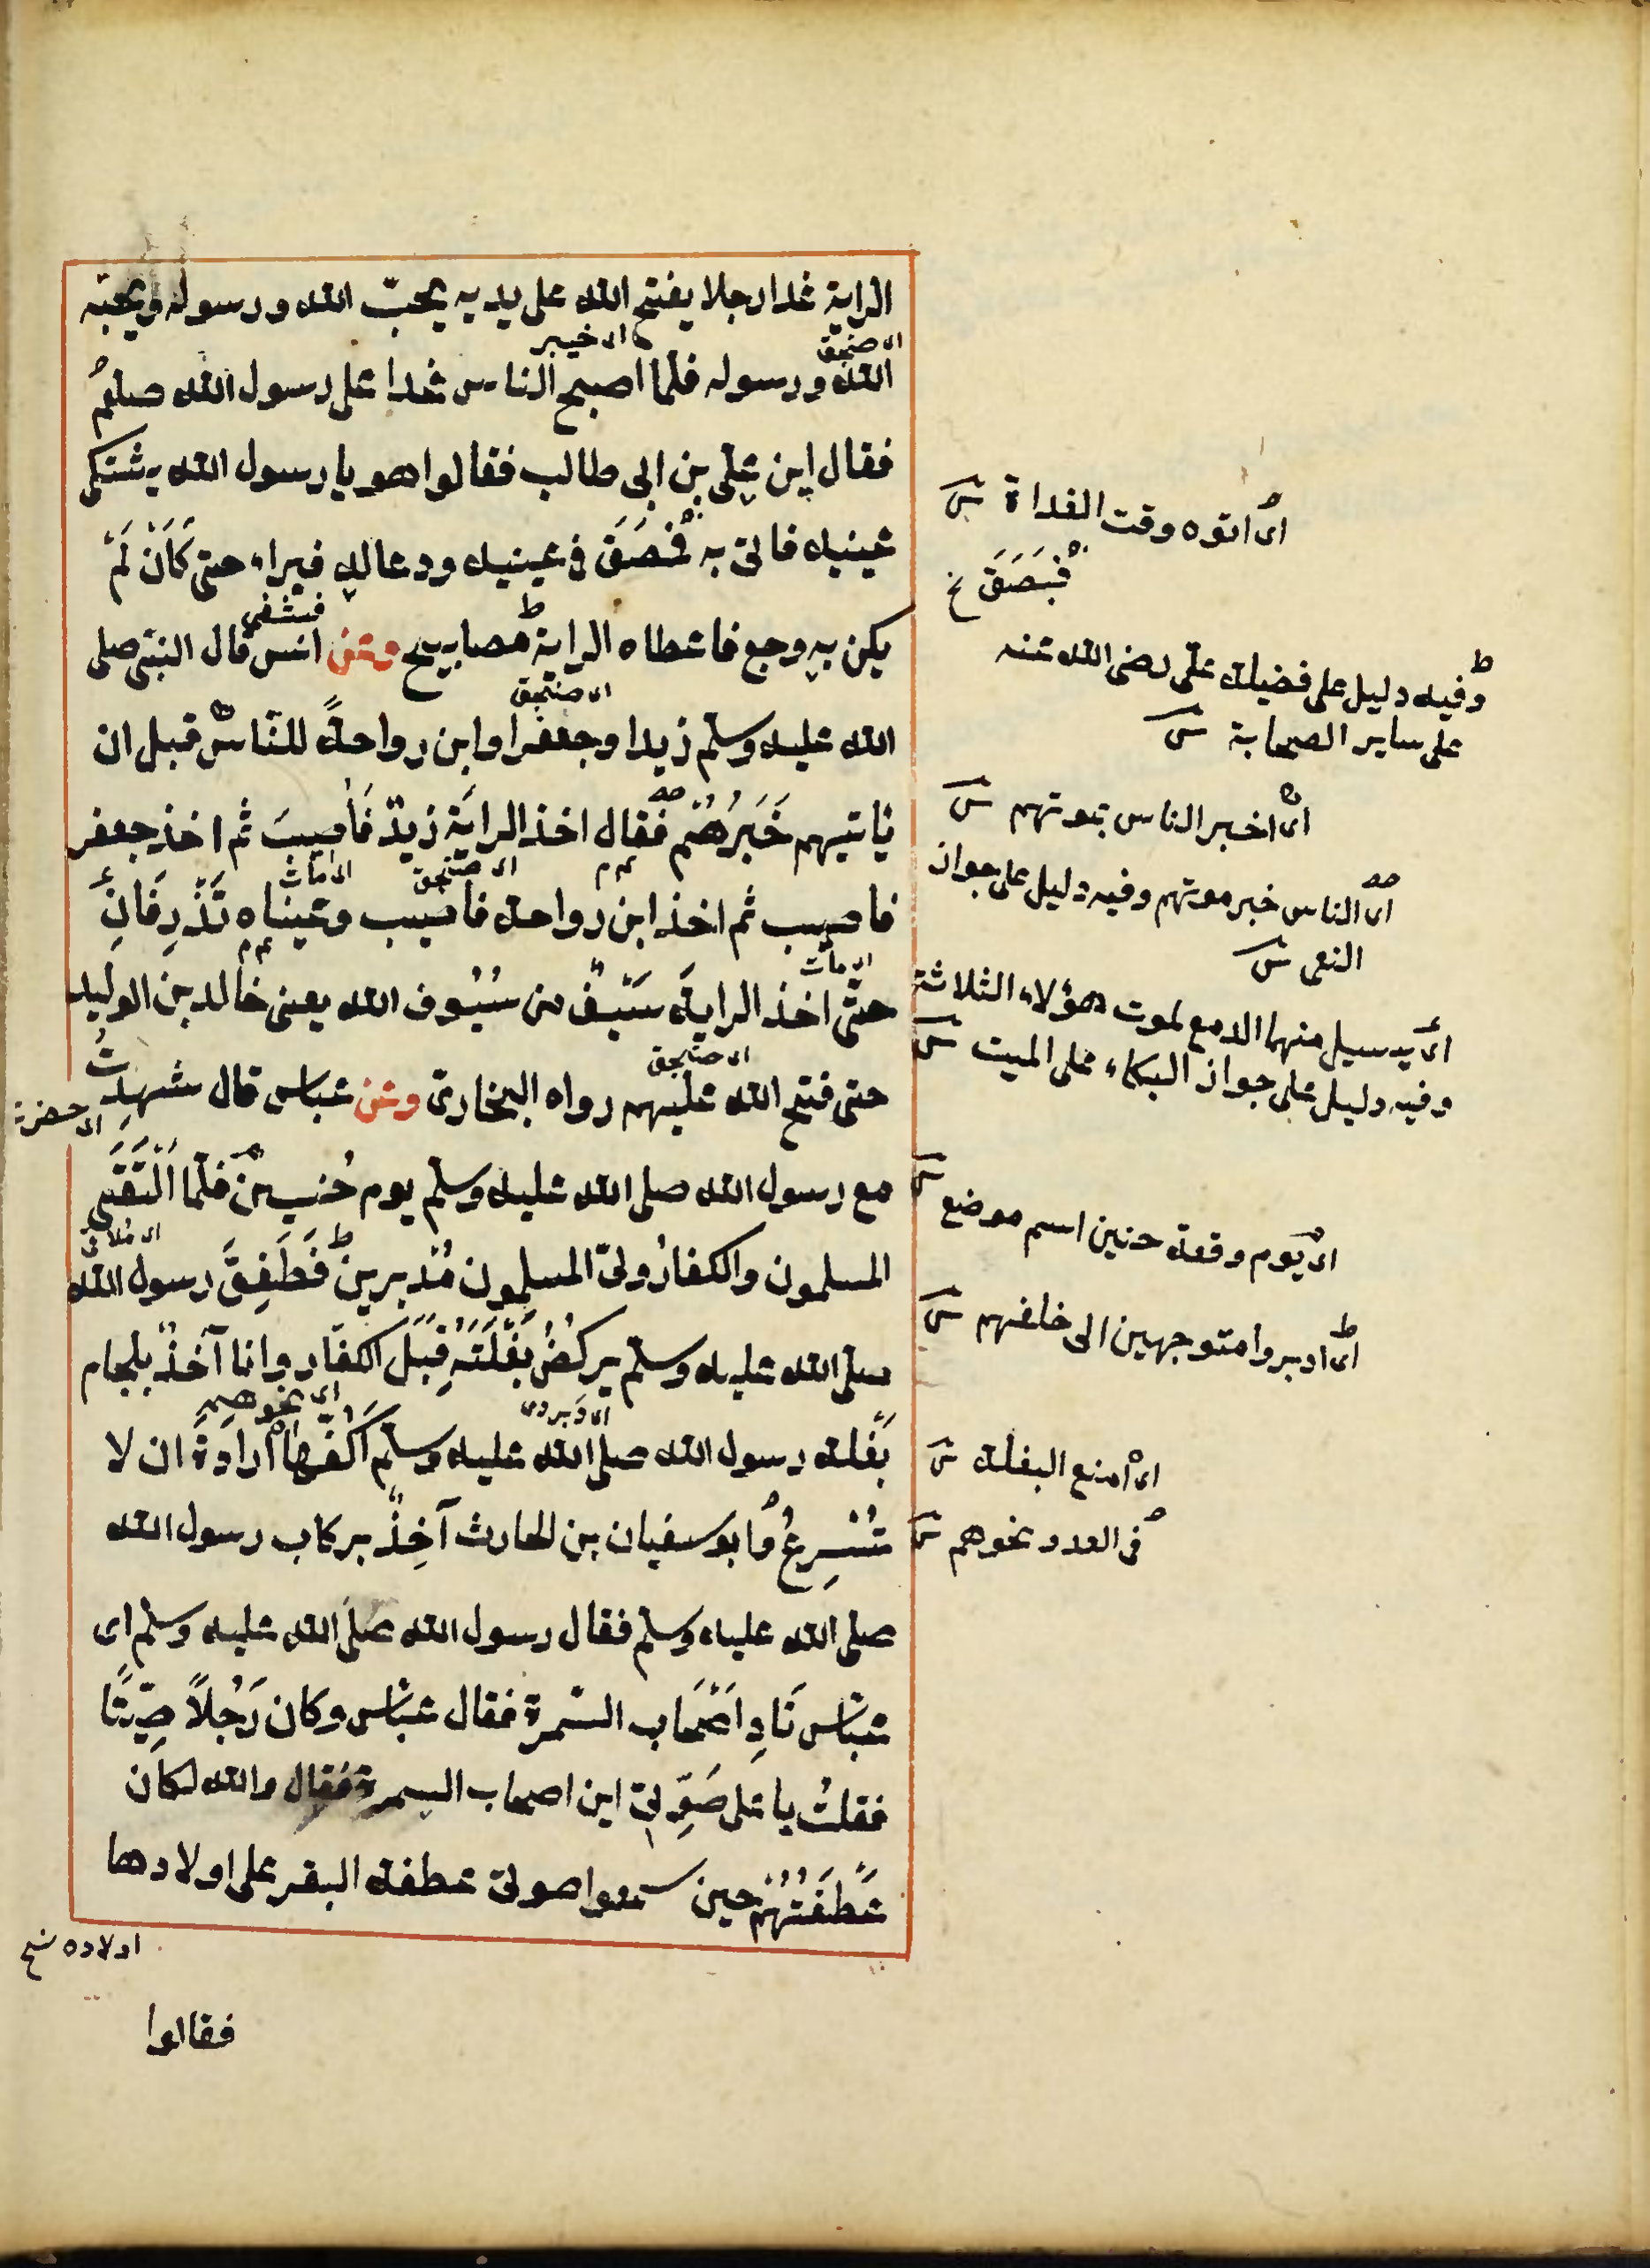 الراية غدا رجلا يفتح الله على يديه يحبّ الله ورسوله ويحبّه
اى صنجق
اى خيبر
الله ورسوله فلما اصبح الناس غدا على رسول الله صلعم
فقال اين علىّ بن ابى طالب فقالوا هو يا رسول الله يشتكى
عينيه فاتى به فَصَقَ فى عينيه ودعا له فبراء حتى كَاَنْ لَمْ
فشفى
يكن به وجع فاعطاه الراية مصابيح وعن انس قال النبىّ صلى
اى صنجق
الله عليه وسلم زيدا وجعفرا وابن رواحةً للنّاس قبل ان
ياتيهم خَبَرُهُمْ فقال اخذ الرايَة زيدٌ فَاُصِيبَ ثم اخذ جعفر
اى صنجق
اى مات
فاصيب ثم اخذ ابن رواحة فاصيب وعيناه تَذْرِفَانِ
اى مات
حتّى اخذ الرايَة سَيْفٌ من سُيُوف الله يعنى خالد بن الوليد
اى صنجق
حتى فتح الله عليهم رواه البخارى وعن عباس قال شهدتُ
اى حضرت
مع رسول الله صلى الله عليه وسلم يوم حُنين فلمّا اَلْتَقَى
اى ملاقى
المسلمون والكفارُ ولىّ المسلمون مُدْبرين فَطَفِقَ رسول الله
صلى الله عليه وسلم يركُضُ بَغْلَتَهُ قِبَلَ الكفّار وانا آخذٌ بلجام
اى نحوهم
بَغْلة رسول الله صلى الله عليه وسلم اَكُفّها اراَدةَ ان لا
تُسْرِعُ وابو سفيان بن الحارث آخِذٌ بركاب رسول الله
صلى الله عليه وسلم فقال رسول الله صلى الله عليه وسلم اى
عبّاس نَادِ اَصْحَاب السّمرة فقال عبّاس وكان رَجُلاً صيّتًا
فقلتُ باعلى صَوْتى اين اصحاب السمرة فقال والله لكان
عَطْفَتُهُمْ حين سمعوا صوتى عطفة البقر على اولادها
اولاده نسخ
فقالوا
اى اتوه وقت الغداة ش
فبَصَقَ خ
وفيه دليل على فضيلة علىّ رضى الله عنه
على ساير الصحابة ش
اى اخبر الناس بموتهم ش
اى الناس خبر موتهم وفيه دليل على جواز
النعى ش
اى يسيل منهما الدمع لموت هؤلاء الثلاثة
وفيه دليل على جواز البكاء على الميت ش
اى يوم وقعة حنين اسم موضع ش
اى ادبروا متوجهين الى خلفهم ش
اى امنع البغلة ش
فى العدو نحوهم ش